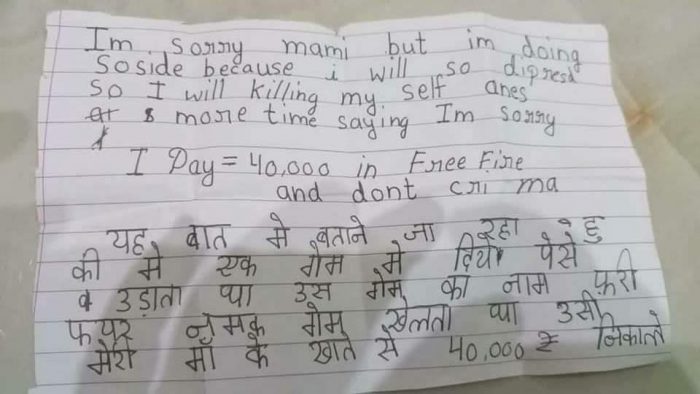 Im sorry mami but im doing
Soside because i will so dipresd
So I will killing my self ones
more time saying Im sorry
I Pay = 40,000 in Free Fire
and dont cri ma
यह बात मे बताने जा रहा हु
की मे एक गेम मे दिये पेसे
उड़ाता था उस गेम का नाम फ़री
फयर नमक गेम खेलता था उसी
मेरी माँ के खाते से 40,000 निकाले